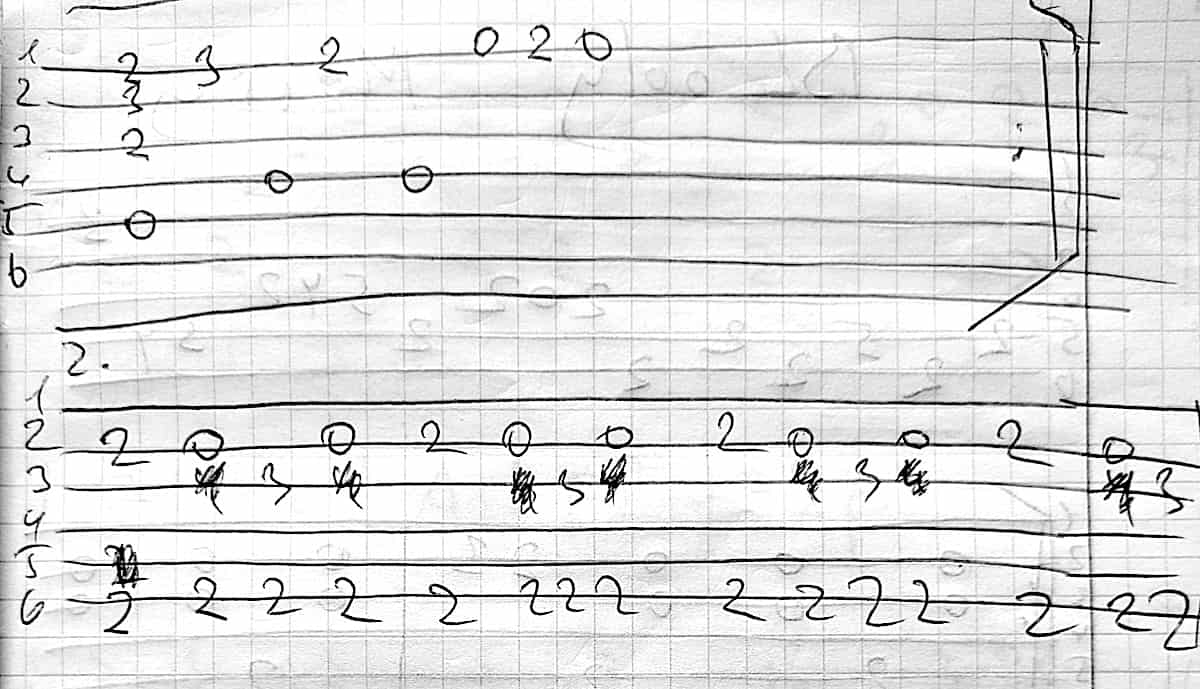 1 2 3 2 0 2 0
2 3
3 2
4 0 0
5 0
6
2.
1
2 2 0 0 2 0 0 2 0 0 2 0
3 3 3 3 3
4
5
6 2 2 2 2 2 2 2 2 2 2 2 2 2 2 2